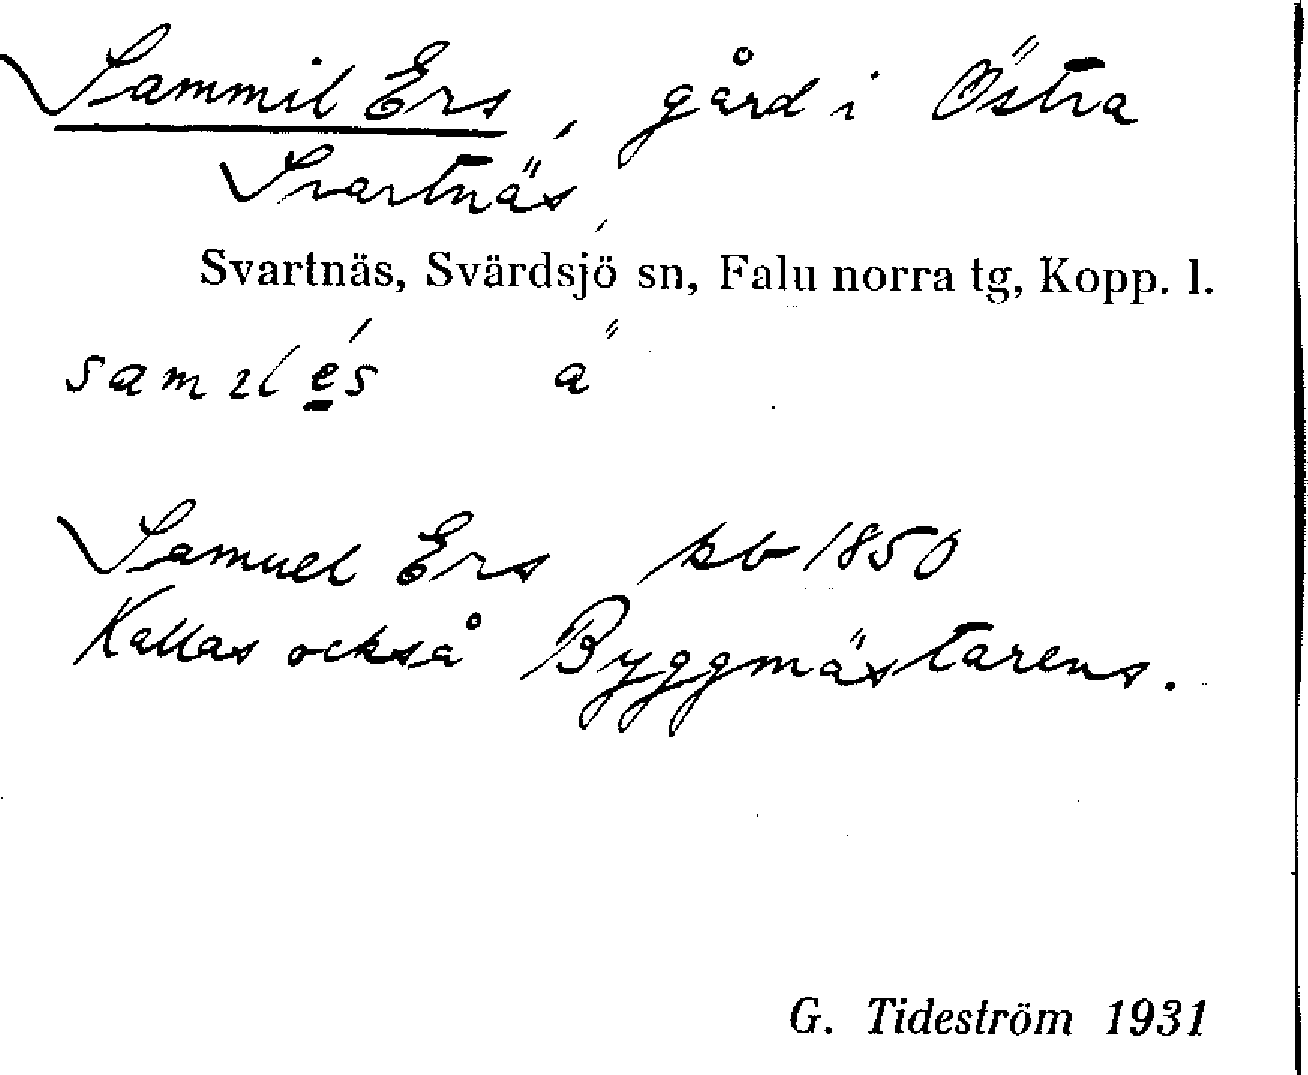 Sammil Ers, gård i Östra
Svartnäs,
Svartnäs, Svärdsjö sn, Falu norra tg, Kopp. l.
a
Samuel Ers kb 1850
Kallas också Byggmästarens.
G. Tideström 1931